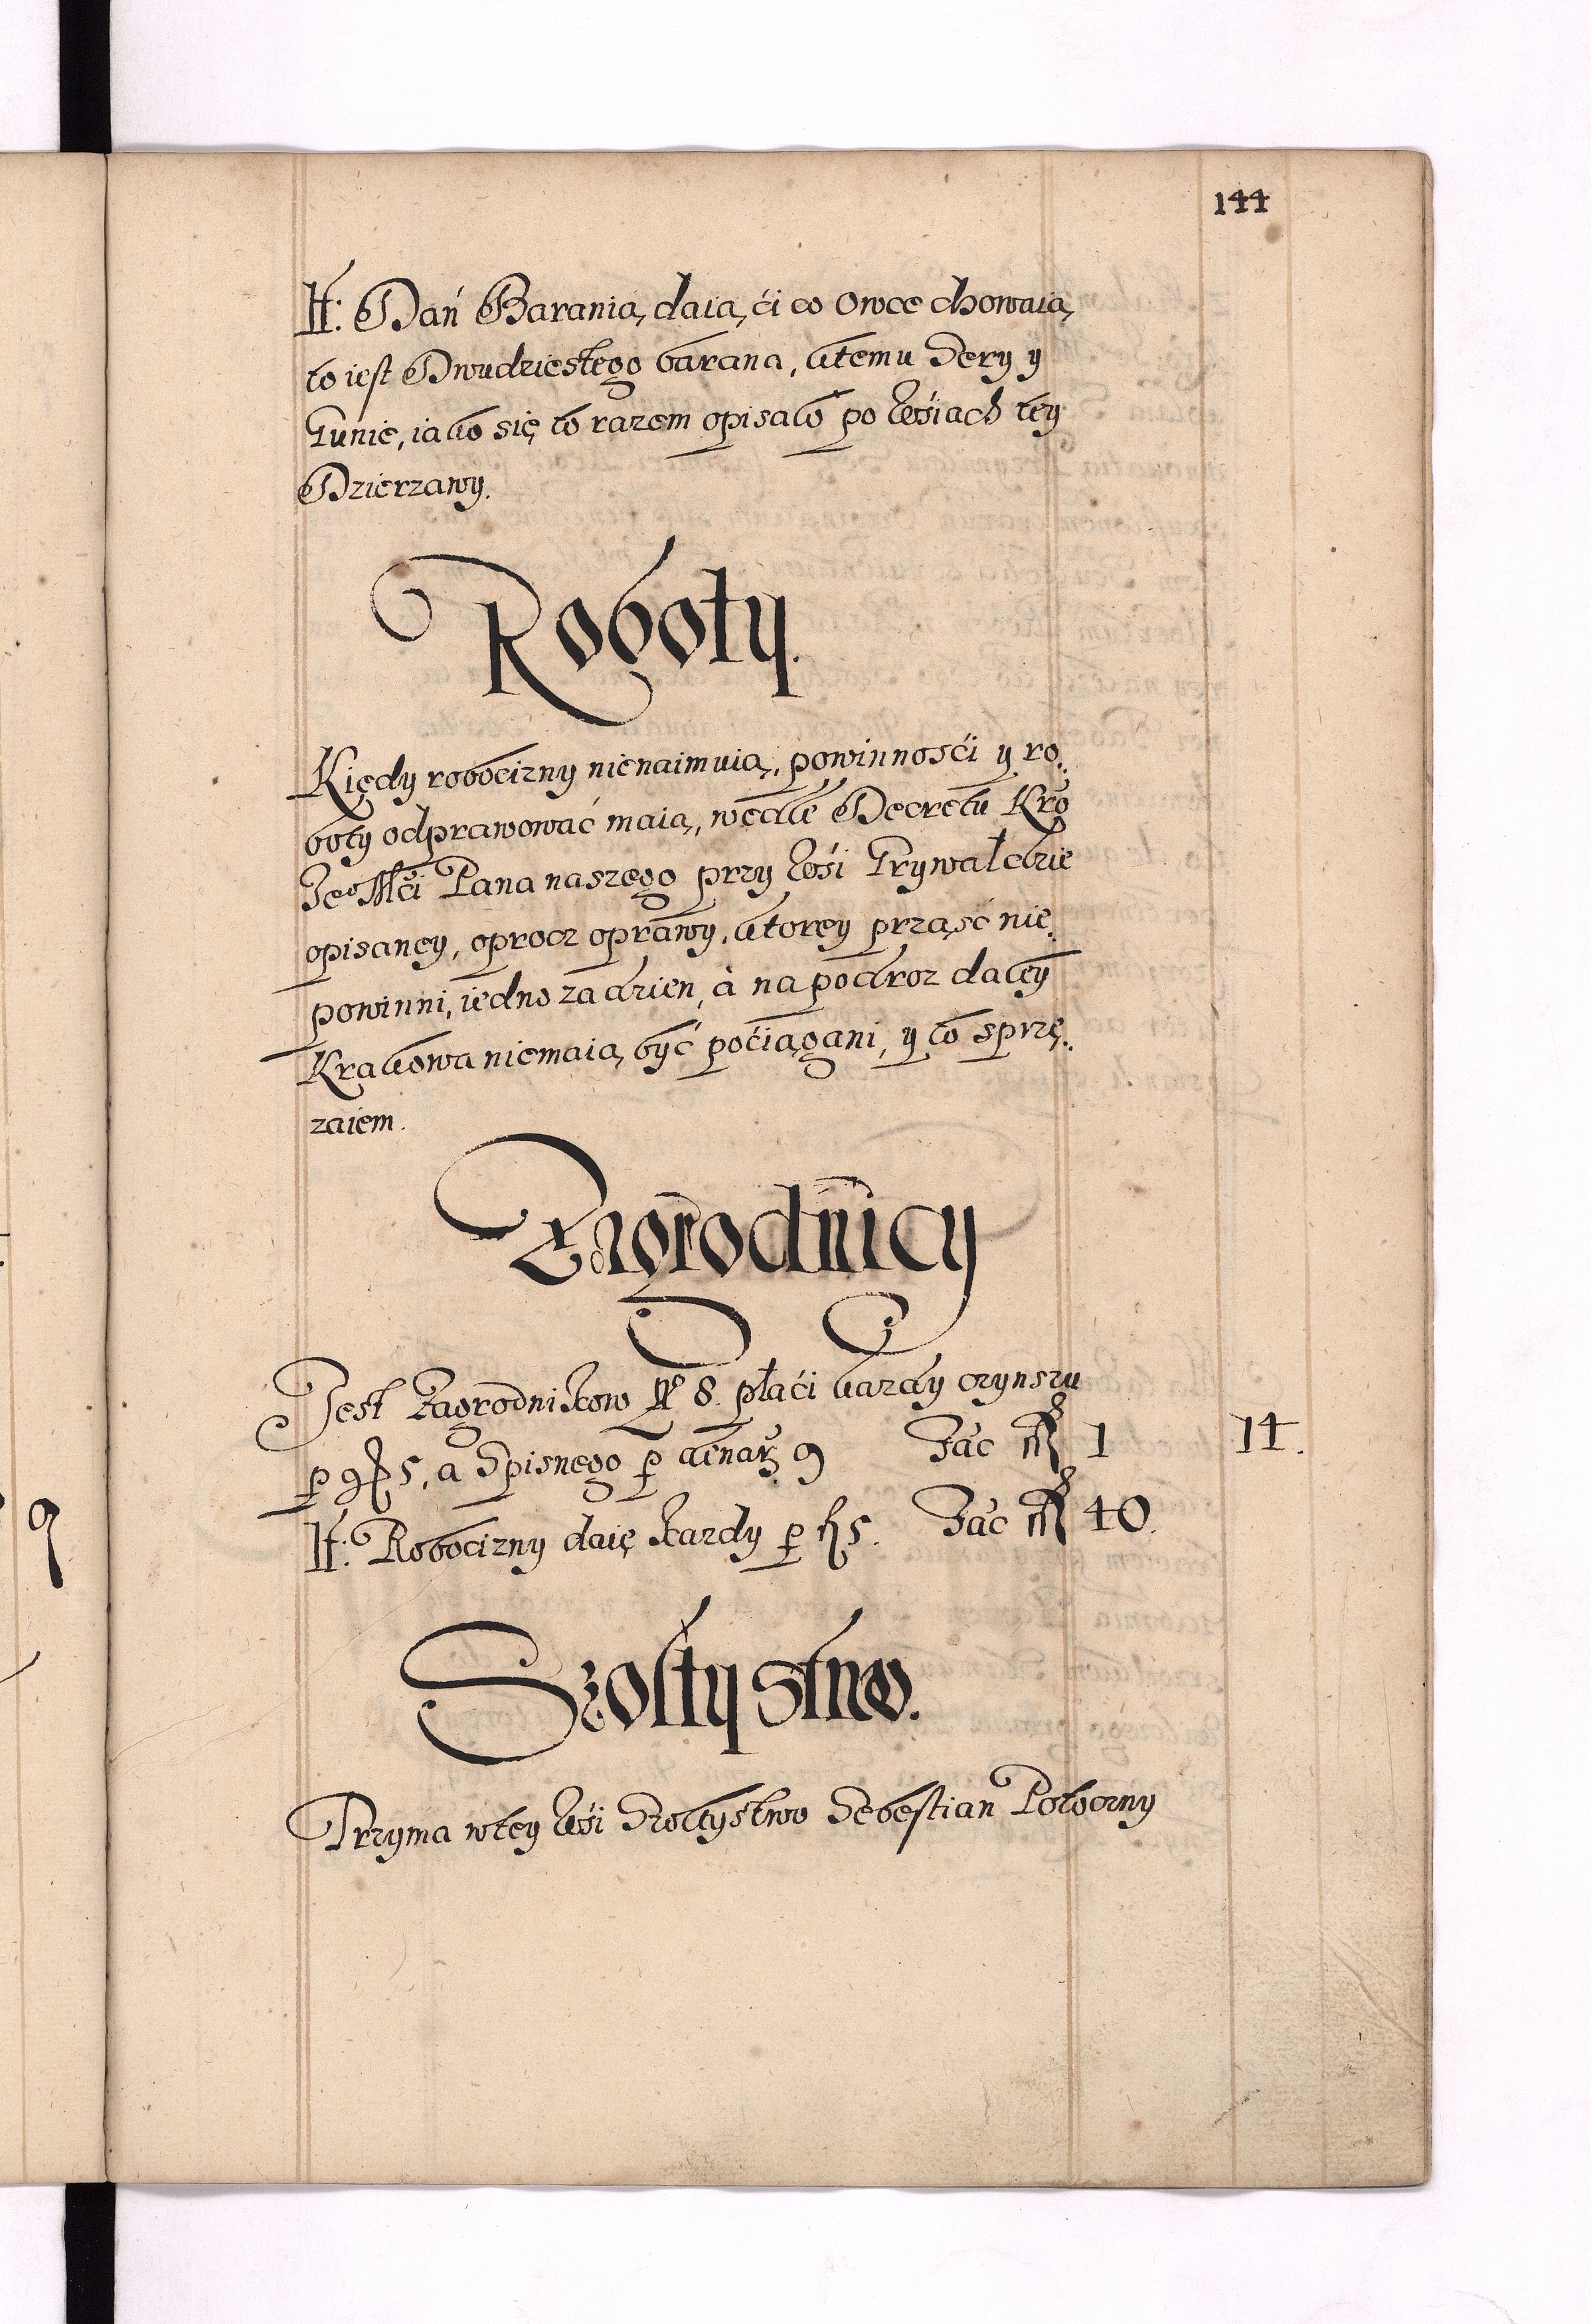 144
It: Dań Barania, daią ći co Owce chowaią
to iest Dwudziestego barana, ktemu Sery y
Gunie, iako się to razem opisało po wśiach tey
Dzierzawy.
Roboty.
Kiędy robocizny nienaimuią, powinnosći y ro,,
boty odprawować maią, wedle Decretu Kro
Jeo Mći Pana naszego przy wśi Grywałdzie
opisaney, oprocz oprawy, ktorey prząść nie,
powinni, iedno za dzien, à na podroz daley
Krakowa niemaią być poćiągani, y to sprzę,,
zaiem.
Zagrodnicy
Jest Zagrodnikow No 8. płaći kazdy czynszu
p gr 5, a Spisnego p denar. 9 Fać mr 1 14.
It: Robocizny daie kazdy p fl 5. Fać mr 40.
Szoltystwo.
Trzyma wtey wśi Szoltystwo Sebestian Poboczny